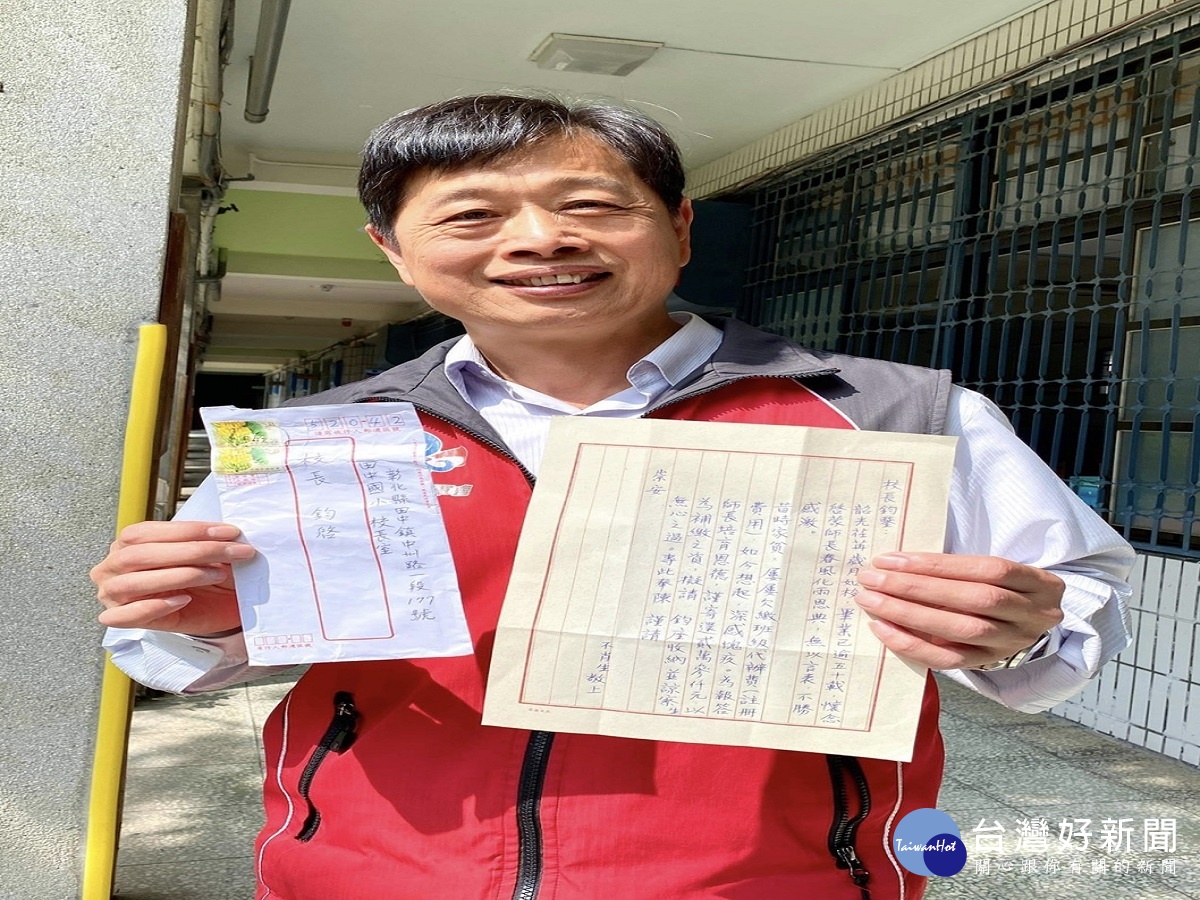 52042
請寫收件人郵遞區號
彰化縣田中鎮中州路一段177號
田中國小 校長室
校長 鈞啓
校長鈞鑒:
韶光荏苒歲月如梭,畢業已逾五十載,懷念
啓蒙師長春風化雨恩典,無以言表,不勝
感激。
昔時家貧,屢屢欠繳班級代辦費(註冊
費用),如今想起,深感愧疚。為報答
師長培育恩德,謹寄還貳萬參仟元,以
為補繳之資,擬請 鈞座收納並諒察生
無心之過。專此奉陳 謹請
崇安
不肖生敬上
台灣好新聞
TaiwanHot
關心跟你有關的新聞